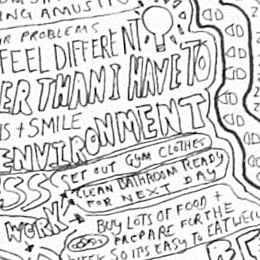 NG AMUSI
R PROBLEMS
FEEL DIFFERENT
ER THAN I HAVE TO
S + SMILE
ENVIRONMENT
SET OUT GYM CLOTHES
SS CLEAN BATHROOM READY
FOR NEXT DAY
WORK
BUY LOTS OF FOOD +
PREPARE FOR THE
WEEK SO ITS EASY TO EAT WELL